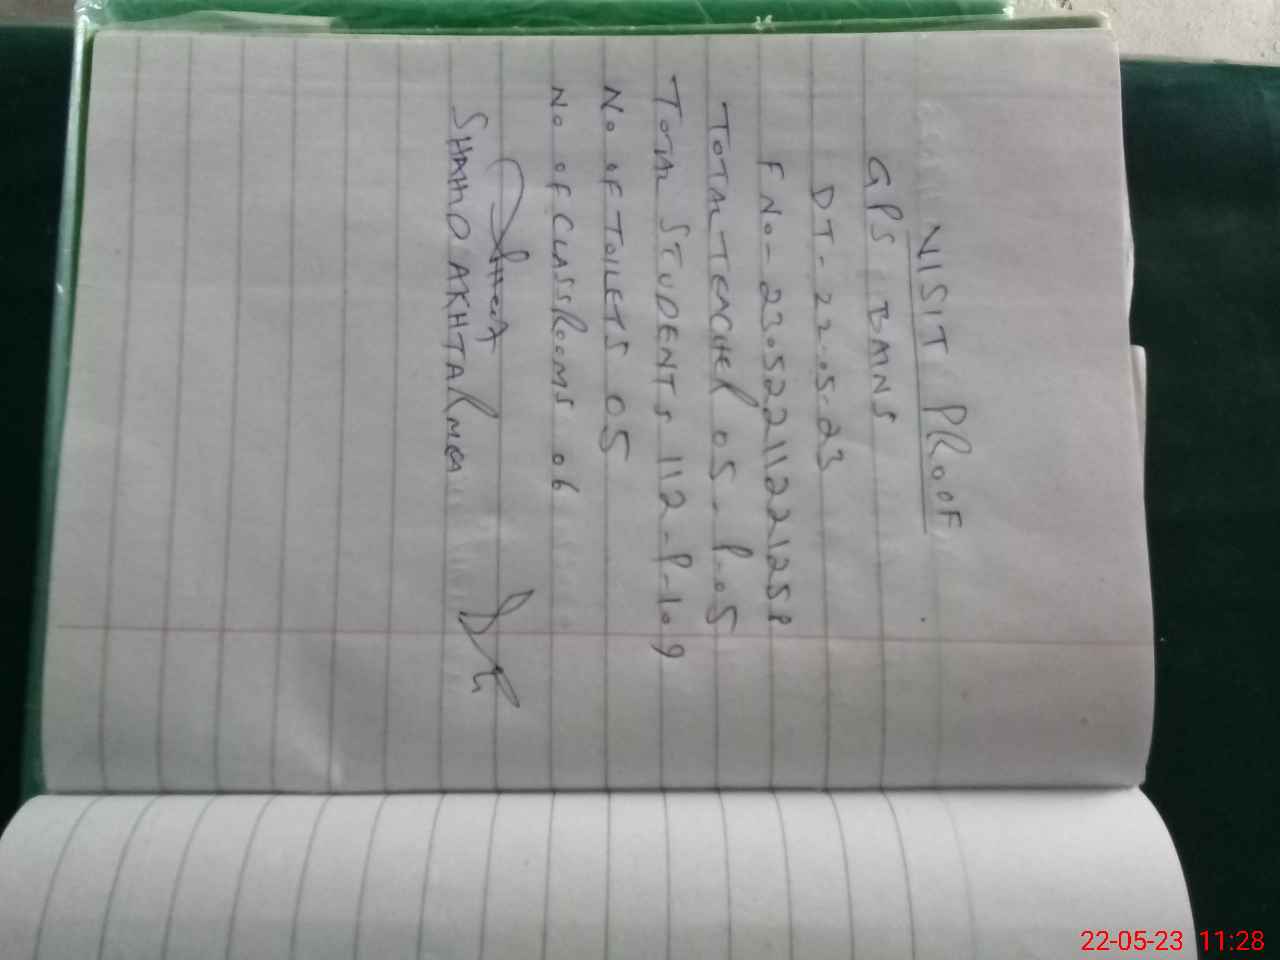 VISIT PROOF
GPS BMNS
DT - 22.05.23
F No - 23052211221258
TOTAL TEACHER 05 - P-05
TOTAL STUDENTS 112 - P-109
No OF TOILETS 05
No OF CLASSROOMS 06
SHAHID AKHTAR
22-05-23 11:28